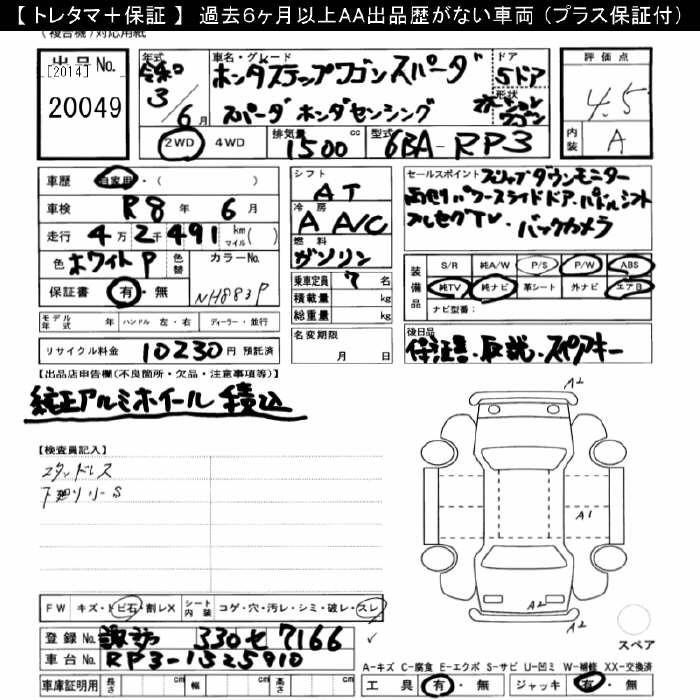 【 トレタマ＋保証 】 過去６ヶ月以上ＡＡ出品歴がない車両（プラス保証付）
(複合機)対応用紙
出品No.
[2014]
20049
年式 令和 3 / 6 月
車名・グレード
ホンダステップワゴン スパーダ
スパーダ ホンダセンシング
ドア 5ドア
形状 ステーションワゴン
評価点
4.5
内装 A
2WD 4WD
排気量 1500 cc
型式 6BA-RP3
車歴 自家用・( )
車検 R8 年 6 月
走行 4 万 2 千 491 km マイル ( )
色 ホワイトP 色替 カラーNo.
保証書 有・無 NH883P
モデル年式 年 ハンドル 左・右 ディーラー・並行
リサイクル料金 10230 円 預託済
シフト AT
冷房 A A/C
燃料 ガソリン
乗車定員 7 名
積載量 kg
総重量 kg
名変期限
月 日
セールスポイント フリップダウンモニター
両側パワースライドドア・パドルシフト
フルセグTV・バックカメラ
装備品
S/R 純A/W P/S P/W ABS
純TV 純ナビ 革シート 外ナビ エアB
ナビ型番：
後日品
保証書・取説・スペアキー
【出品店申告欄(不良箇所・欠品・注意事項等)】
純正アルミホイール 積込
【検査員記入】
スタッドレス
下廻リリーS
A2
A1
A2
A2
スペア
FW キズ・トビ石・割レX シート内装 コゲ・穴・汚レ・シミ・破レ・スレ
登録No. 諏訪 330 せ 7166
車台No. RP3-1325910
車庫証明用 長さ cm 幅 cm 高さ cm
A-キズ C-腐食 E-エクボ S-サビ U-凹ミ W-補修 XX-交換済
工具 有・無 ジャッキ 有・無